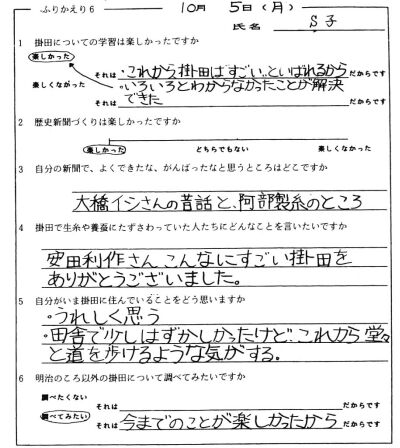 ふりかえり6 10月 5日(月)
氏名 S子
1 掛田についての学習は楽しかったですか
楽しかった
それは ・これから掛田はすごい。といばれるから だからです
楽しくなかった ・いろいろとわからなかったことが解決
それは できた だからです
2 歴史新聞づくりは楽しかったですか
楽しかった どちらでもない 楽しくなかった
3 自分の新聞で、よくできたな、がんばったなと思うところはどこですか
大橋イシさんの昔話と、阿部製糸のところ
4 掛田で生糸や養蚕にたずさわっていた人たちにどんなことを言いたいですか
安田利作さん、こんなにすごい掛田を
ありがとうございました。
5 自分がいま掛田に住んでいることをどう思いますか
・うれしく思う
・田舎で少しはずかしかったけど、これから堂々
と道を歩けるような気がする。
6 明治のころ以外の掛田について調べてみたいですか
調べたくない
それは だからです
調べてみたい
それは 今までのことが楽しかったから だからです